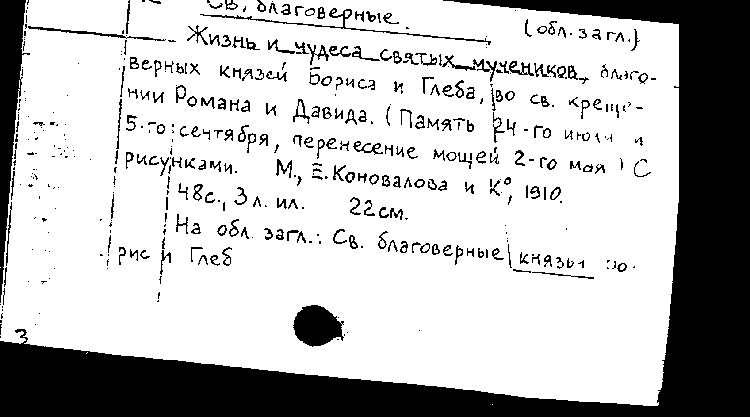 Св. благоверные. (обл. загл.)
Жизнь и чудеса святых мучеников, благо-
верных князей Бориса и Глеба, во св. креще-
нии Романа и Давида. (Память 24-го июля и
5-го сентября, перенесение мощей 2-го мая) С
рисунками. М., Е. Коновалова и К°, 1910.
48с., 3 л. ил. 22см.
На обл. загл.: Св. благоверные князья
рис и Глеб
3